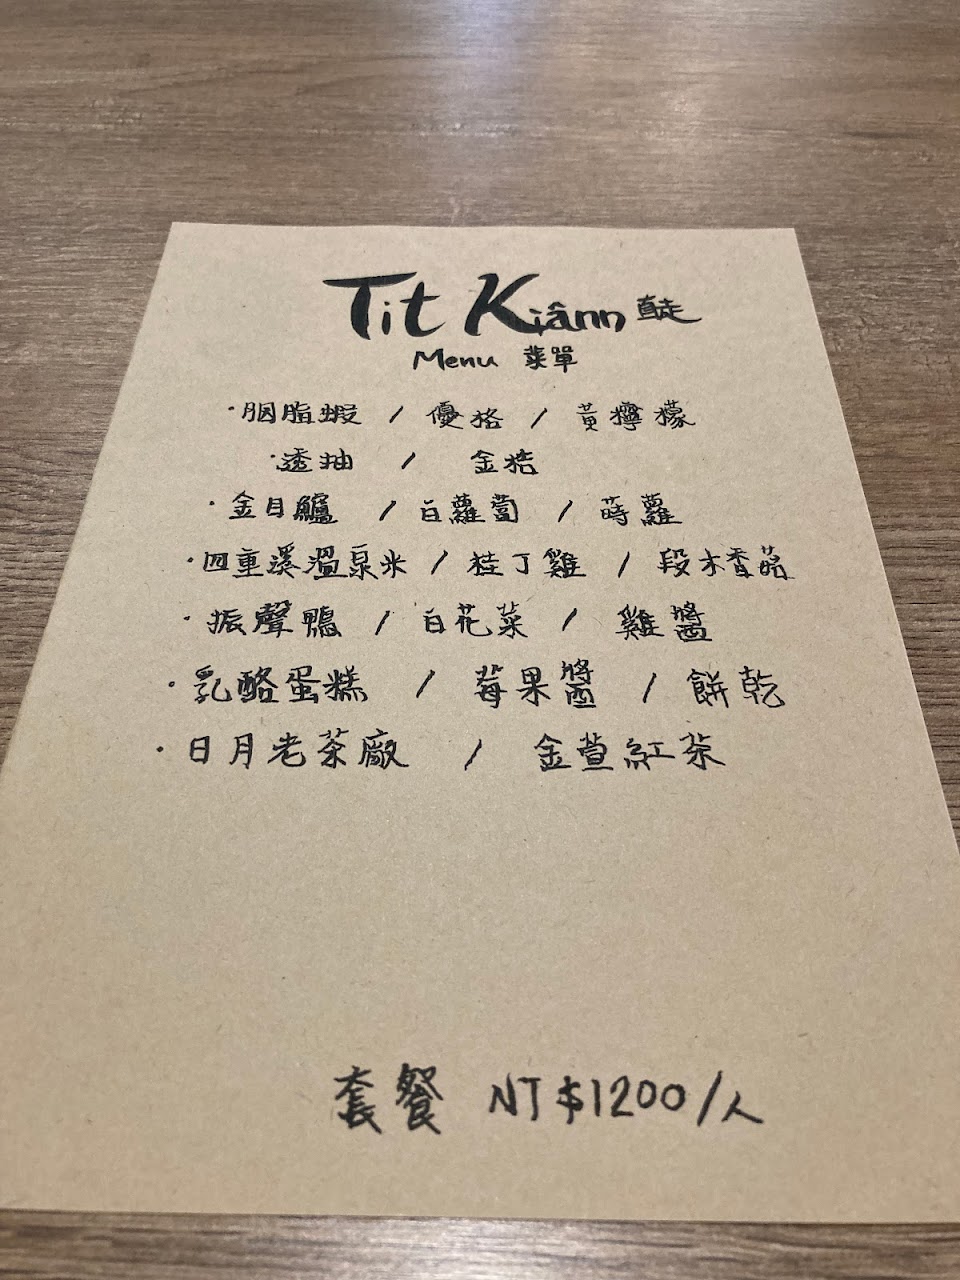 Tit Kiânn 直走
Menu 菜單
·胭脂蝦 / 優格 / 黃檸檬
·透抽 / 金桔
·金目鱸 / 白蘿蔔 / 蒔蘿
·四重溪溫泉米 / 桂丁雞 / 段木香菇
·振聲鴨 / 白花菜 / 雞醬
·乳酪蛋糕 / 莓果醬 / 餅乾
·日月老茶廠 / 金萱紅茶
套餐 NT$1200/人